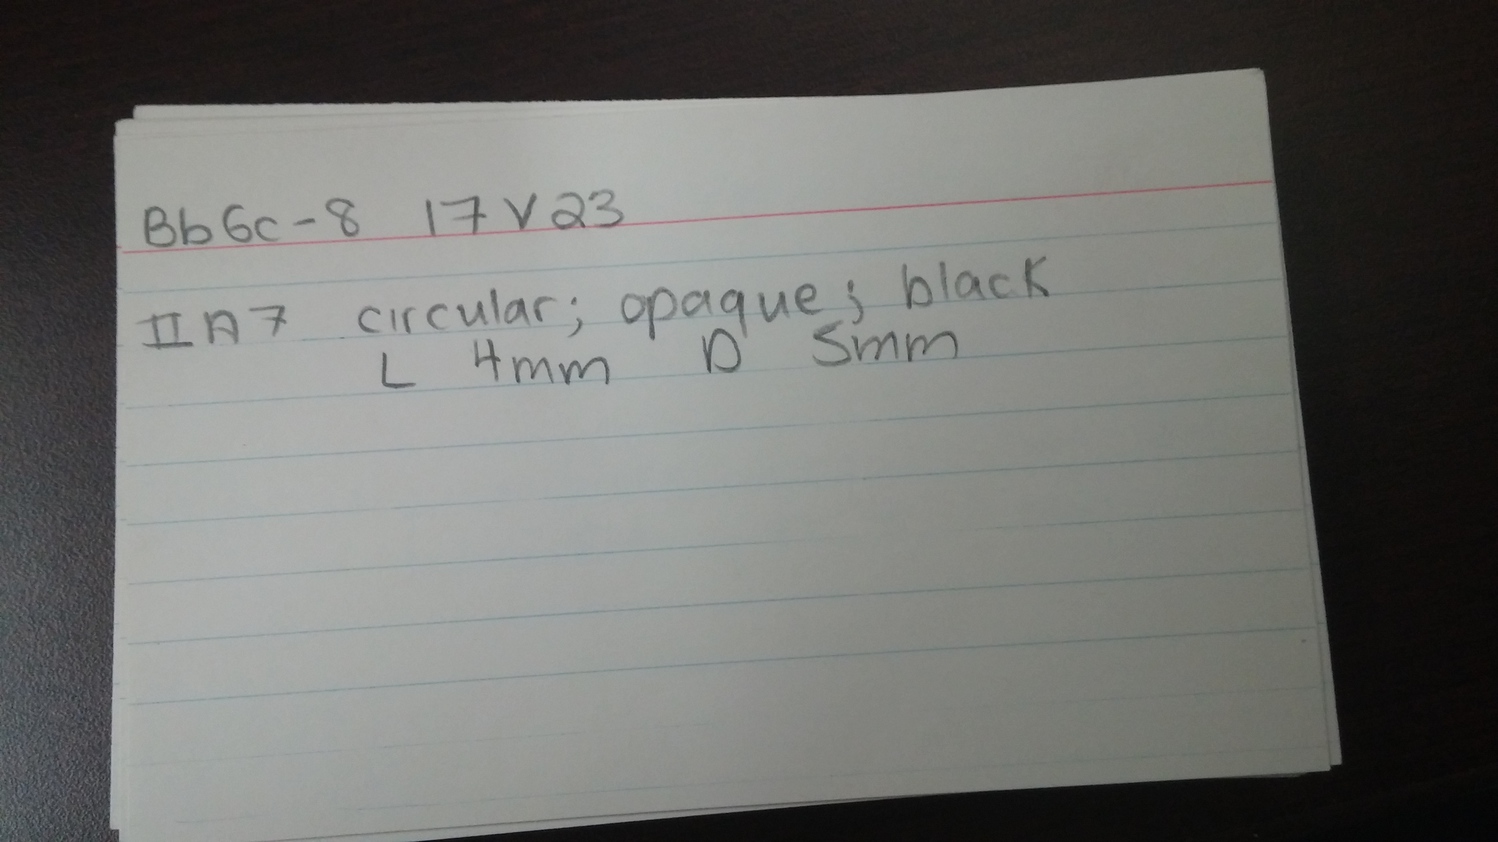 Bb6c-8 17V23
IIA7 circular; opaque; black
L 4mm D 5mm